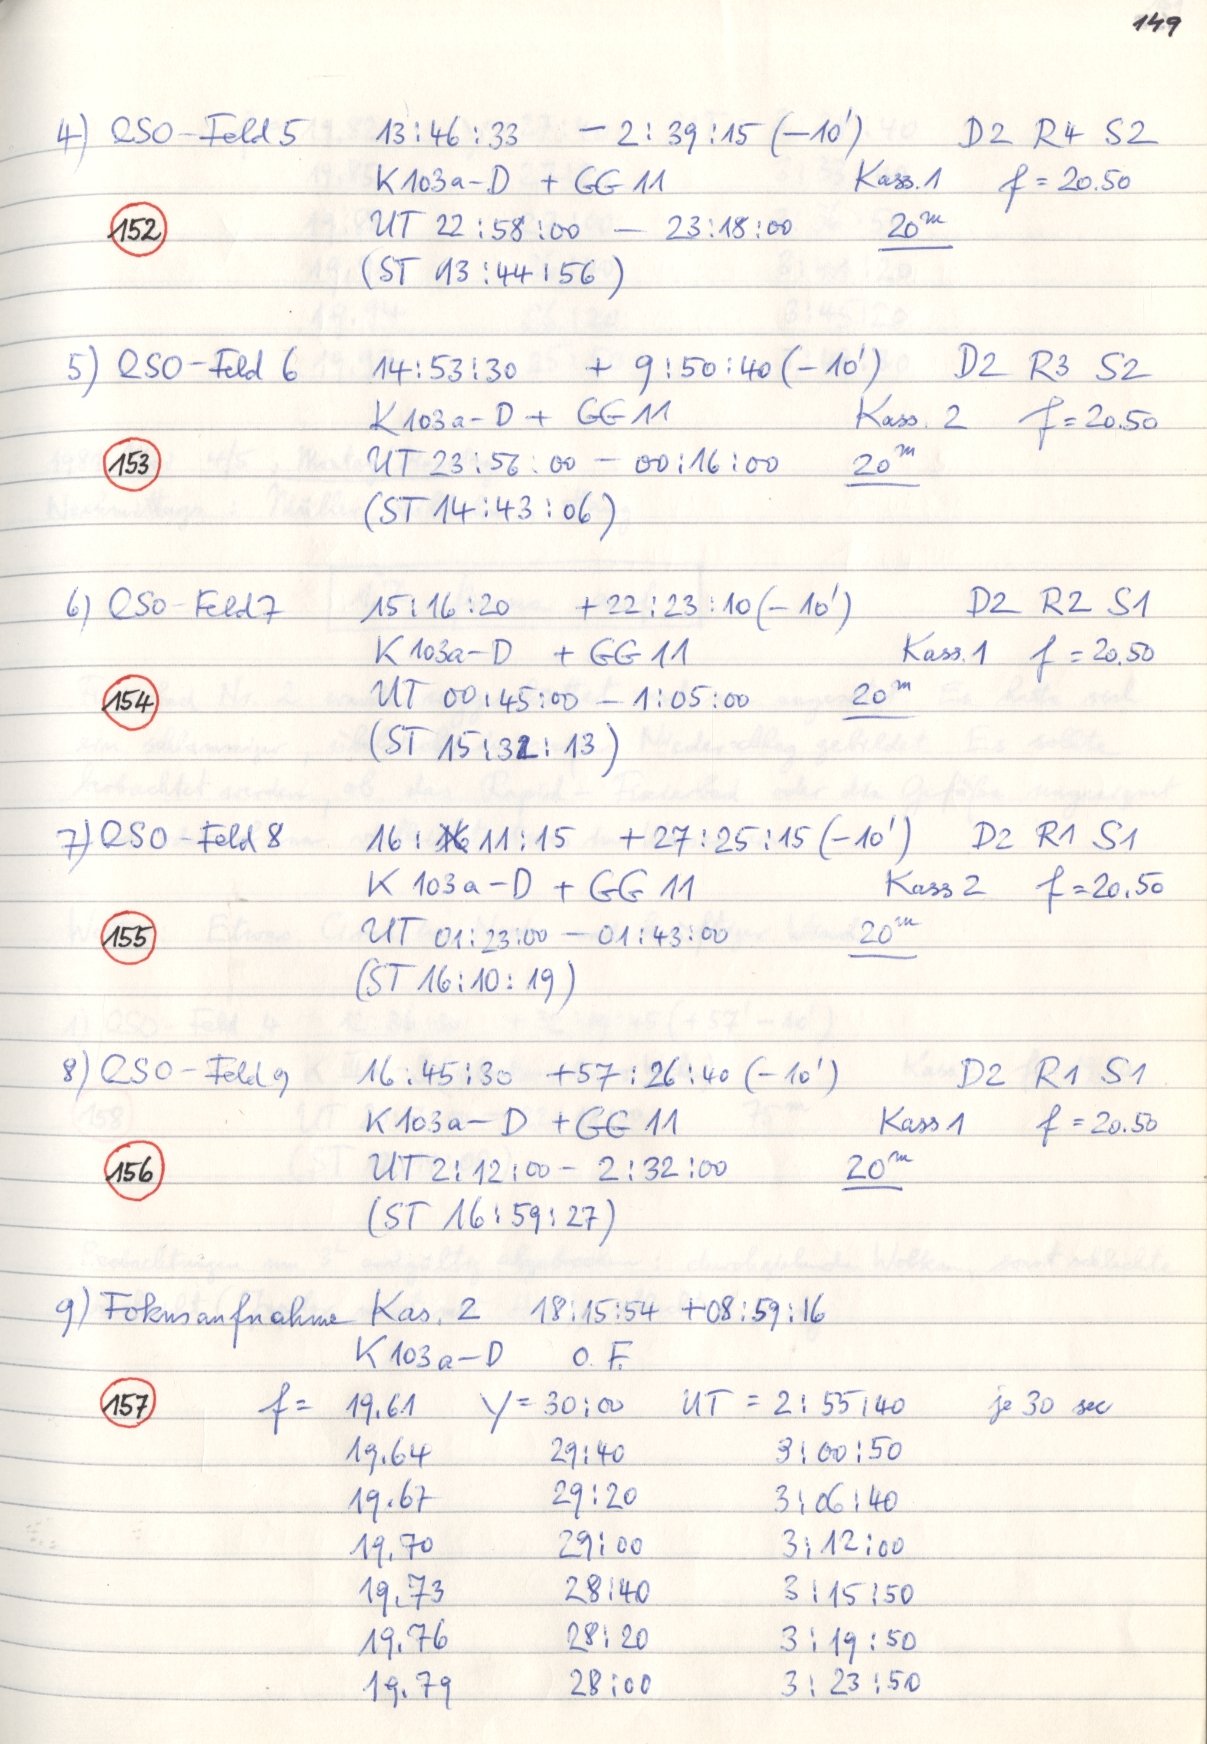 149
4) QSO-Feld 5 13:46:33 - 2:39:15 (-10') D2 R4 S2
K103a-D + GG 11 Kass.1 f = 20.50
152 UT 22:58:00 - 23:18:00 20m
(ST 13:44:56)
5) QSO-Feld 6 14:53:30 + 9:50:40 (-10') D2 R3 S2
K103a-D + GG 11 Kass. 2 f = 20.50
153 UT 23:56:00 - 00:16:00 20m
(ST 14:43:06)
6) QSO-Feld 7 15:16:20 +22:23:10 (-10') D2 R2 S1
K 103a-D + GG 11 Kass.1 f = 20.50
154 UT 00:45:00 - 1:05:00 20m
(ST 15:32:13)
7) QSO-Feld 8 16:11:15 +27:25:15 (-10') D2 R1 S1
K 103a-D + GG 11 Kass 2 f = 20.50
155 UT 01:23:00 - 01:43:00 20m
(ST 16:10:19)
8) QSO-Feld 9 16:45:30 +57:26:40 (-10') D2 R1 S1
K103a-D + GG 11 Kass 1 f = 20.50
156 UT 2:12:00 - 2:32:00 20m
(ST 16:59:27)
9) Fokusaufnahme Kas. 2 18:15:54 +08:59:16
K103a-D O.F.
157 f = 19.61 Y = 30:00 UT = 2:55:40 je 30 sec
19.64 29:40 3:00:50
19.67 29:20 3:06:40
19.70 29:00 3:12:00
19.73 28:40 3:15:50
19.76 28:20 3:19:50
19.79 28:00 3:23:50